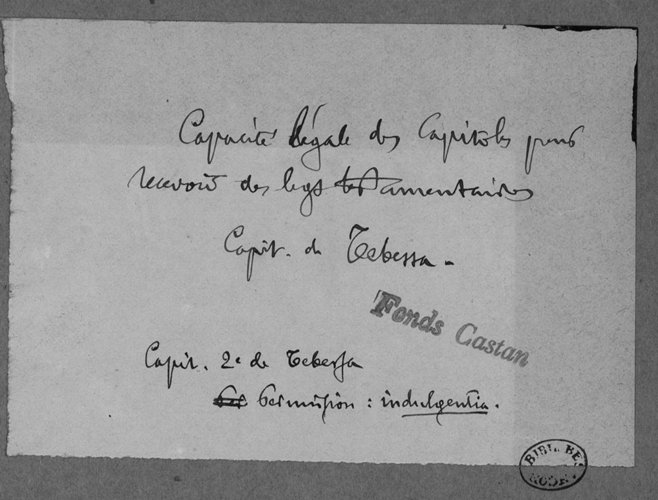 Capacité légale des Capitoles pour
recevoir des legs testamentaires
Capit. de Tebessa.
Fonds Castan
Capit. 2e de Tebessa
permission : indulgentia.
BIBL. BES